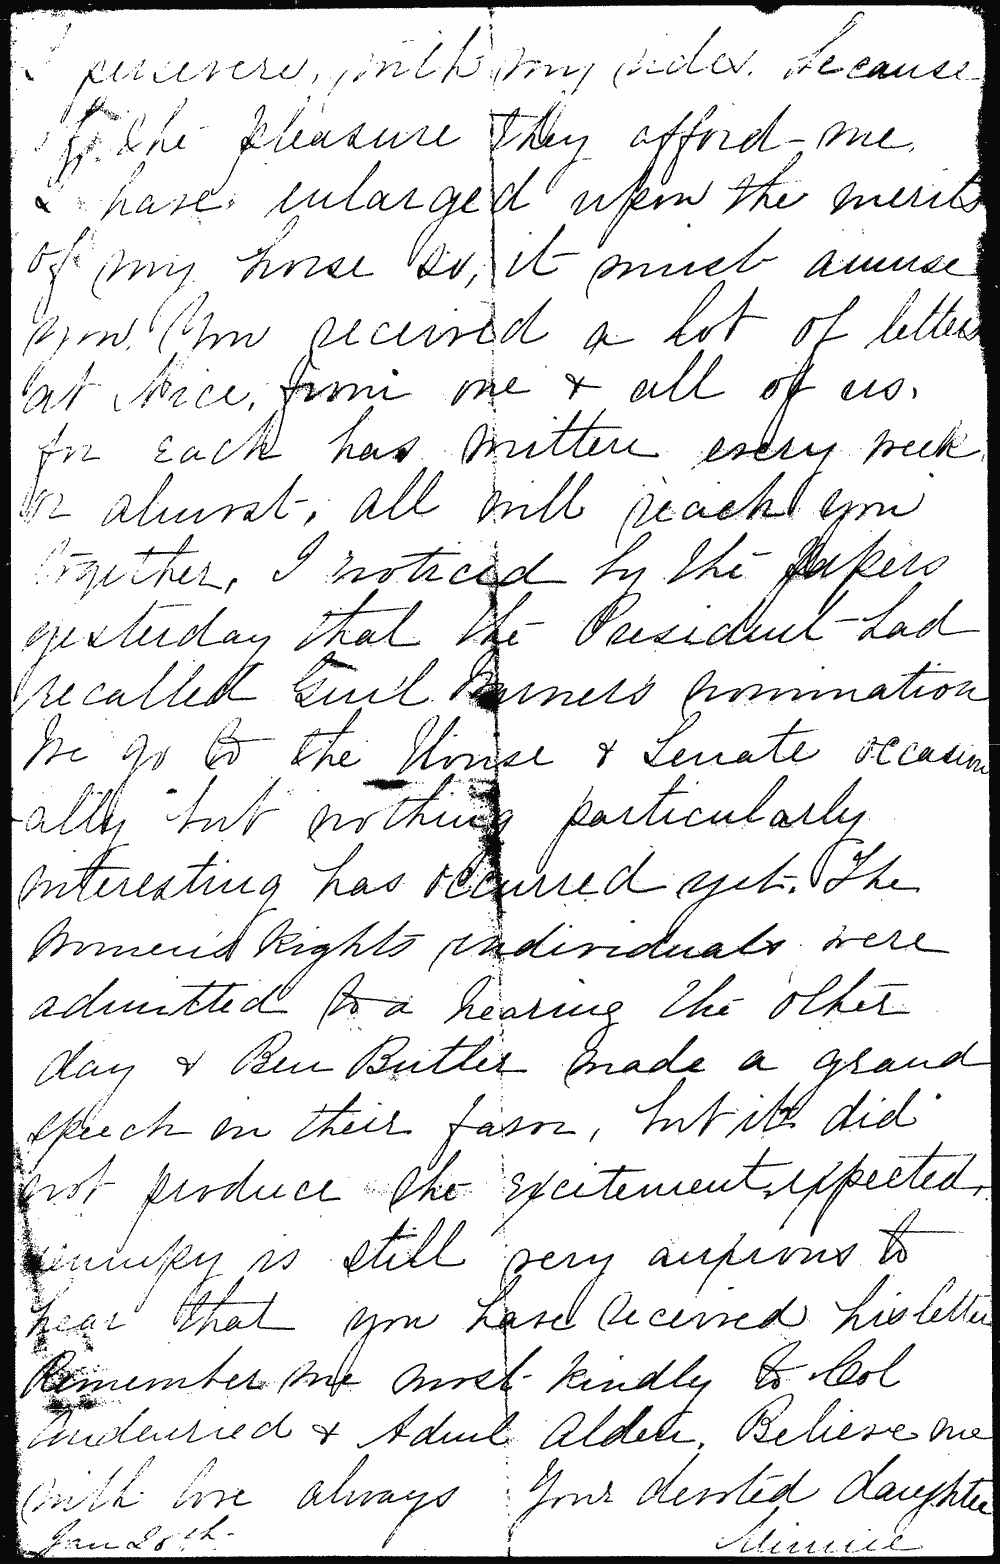 I persevere, with my rides. because
of the pleasure they afford me.
I have enlarged upon the merits
of my horse so, it must amuse
you. You received a lot of letters
at Nice, from me & all of us.
for each has written every week
or almost, all will reach you
together, I noticed by the papers
yesterday that the President had
recalled Genl Warner's nomination
We go to the House & Senate occasion
-ally but nothing particularly
interesting has occurred yet. The
Women's Rights individuals were
admitted to a hearing the other
day & Ben Butler made a grand
speech in their favor, but it did
not produce the excitement expected.
is still very anxious to
hear that you have received his letter
Remember me most kindly to Col
Audenried & Adml Alden. Believe me
with love always Your devoted daughter
Jan 20th Minnie